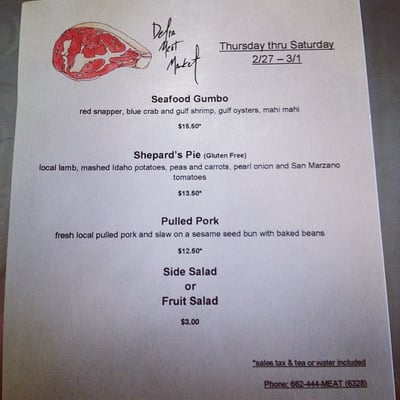 Delta
Meat
Market
Thursday thru Saturday
2/27 – 3/1
Seafood Gumbo
red snapper, blue crab and gulf shrimp, gulf oysters, mahi mahi
$15.50*
Shepard's Pie (Gluten Free)
local lamb, mashed Idaho potatoes, peas and carrots, pearl onion and San Marzano
tomatoes
$13.50*
Pulled Pork
fresh local pulled pork and slaw on a sesame seed bun with baked beans
$12.50*
Side Salad
or
Fruit Salad
$3.00
*sales tax & tea or water included
Phone: 662-444-MEAT (6328)